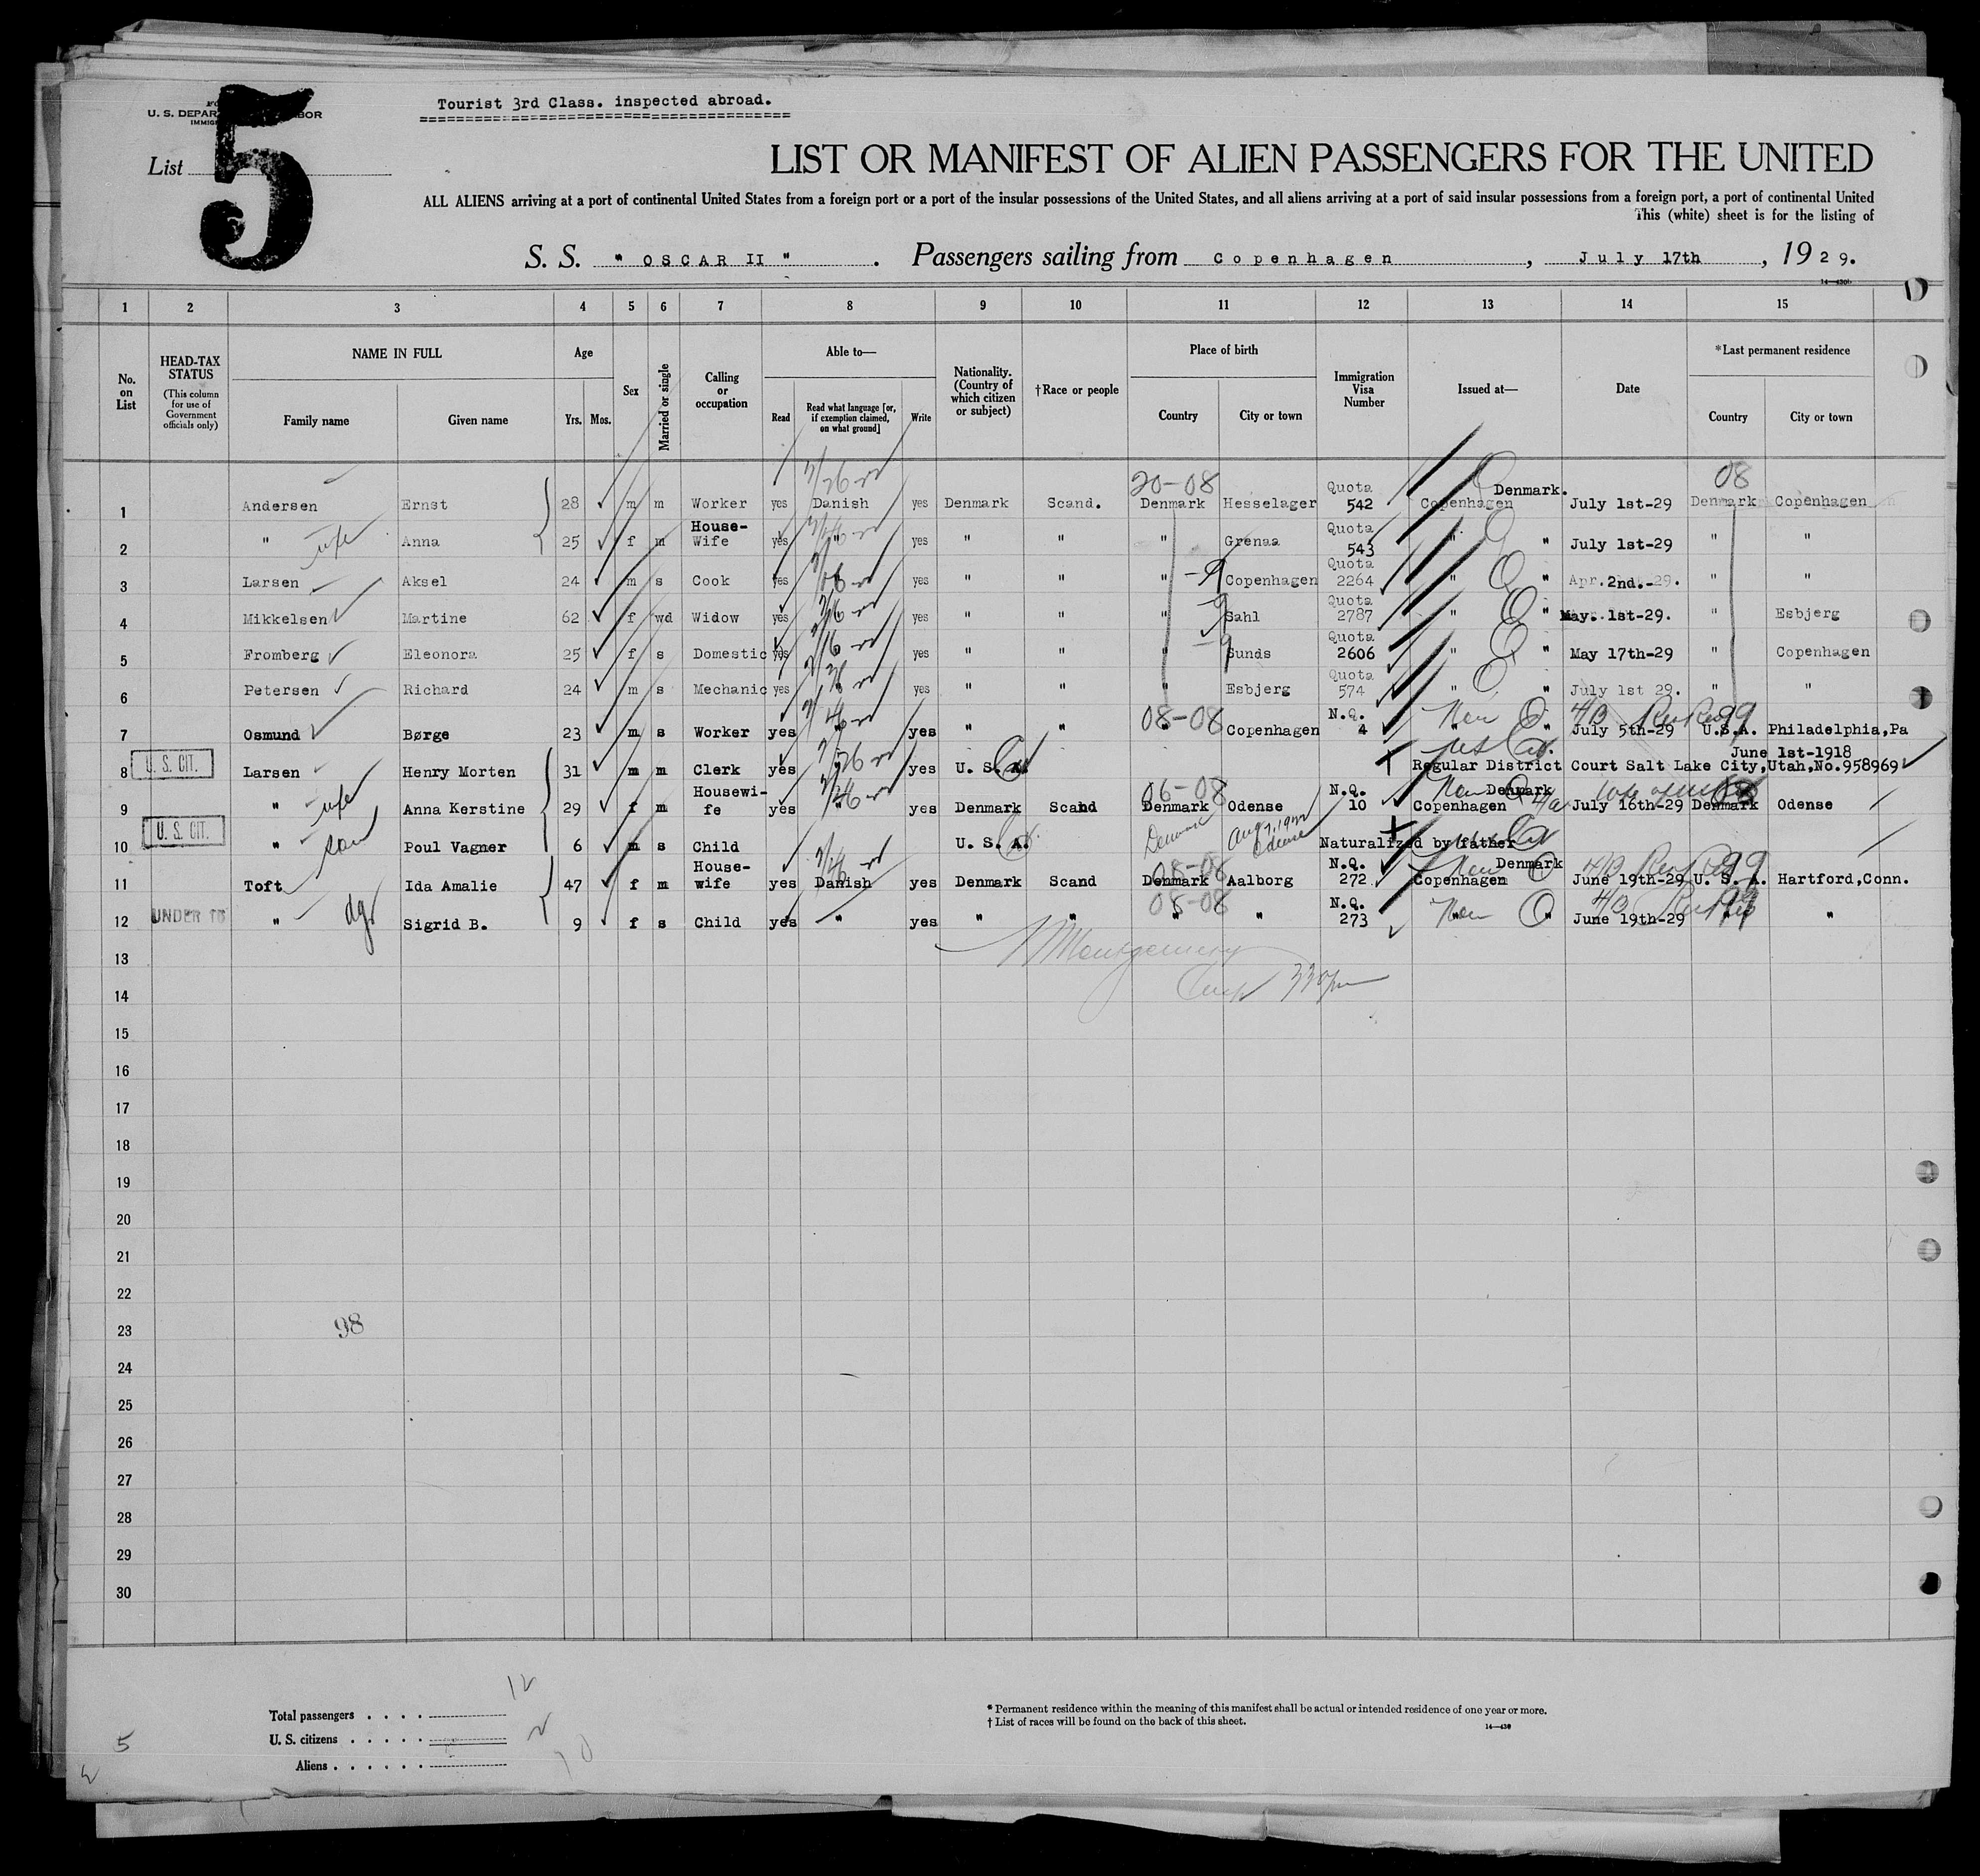 Tourist 3rd Class. inspected abroad.
U. S. DEPAR BOR
IMMIG
5
List
LIST OR MANIFEST OF ALIEN PASSENGERS FOR THE UNITED
ALL ALIENS arriving at a port of continental United States from a foreign port or a port of the insular possessions of the United States, and all aliens arriving at a port of said insular possessions from a foreign port, a port of continental United
This (white) sheet is for the listing of
S. S. " OSCAR II " . Passengers sailing from Copenhagen , July 17th , 1929.
1 2 3 4 5 6 7 8 9 10 11 12 13 14 15
No. on List
HEAD-TAX STATUS
(This column for use of Government officials only)
NAME IN FULL
Family name Given name
Age
Yrs. Mos.
Sex
Married or single
Calling or occupation
Able to—
Read
Read what language [or, if exemption claimed, on what ground]
Write
Nationality. (Country of which citizen or subject)
†Race or people
Place of birth
Country City or town
Immigration Visa Number
Issued at—
Date
*Last permanent residence
Country City or town
20-08 08
1 Andersen Ernst 28 m m Worker yes Danish yes Denmark Scand. Denmark Hesselager Quota 542 Copenhagen Denmark. July 1st-29 Denmark Copenhagen
2 " wife Anna 25 f m House-Wife yes " yes " " " Grenaa Quota 543 " " July 1st-29 " "
3 Larsen Aksel 24 m s Cook yes " yes " " " Copenhagen Quota 2264 " " Apr. 2nd.-29. " "
4 Mikkelsen Martine 62 f wd Widow yes " yes " " " Sahl Quota 2787 " " May. 1st-29. " Esbjerg
5 Fromberg Eleonora 25 f s Domestic yes " yes " " " Sunds Quota 2606 " " May 17th-29 " Copenhagen
6 Petersen Richard 24 m s Mechanic yes " yes " " " Esbjerg Quota 574 " " July 1st 29. " "
08-08 99
7 Osmund Børge 23 m s Worker yes " yes " " " Copenhagen N.Q. 4 " " July 5th-29 U.S.A. Philadelphia,Pa
June 1st-1918
U. S. CIT.
8 Larsen Henry Morten 31 m m Clerk yes " yes U. S. A. Regular District Court Salt Lake City,Utah,No.958969
06-08 08
9 " wife Anna Kerstine 29 f m Housewi-fe yes " yes Denmark Scand Denmark Odense N.Q. 10 Copenhagen Denmark July 16th-29 Denmark Odense
U. S. CIT.
10 " son Poul Vagner 6 m s Child U. S. A. Denmark Odense Naturalized by father
08-08 99
11 Toft Ida Amalie 47 f m House-wife yes Danish yes Denmark Scand Denmark Aalborg N.Q. 272 Copenhagen Denmark June 19th-29 U. S. A. Hartford,Conn.
UNDER 16
08-08 99
12 " dgr Sigrid B. 9 f s Child yes " yes " " " " N.Q. 273 " " June 19th-29 " "
13 Montgomery
14 330pm
15
16
17
18
19
20
21
22
23 98
24
25
26
27
28
29
30
Total passengers . . . . 12
U. S. citizens . . . . . 2
Aliens . . . . . . 10
5
* Permanent residence within the meaning of this manifest shall be actual or intended residence of one year or more.
† List of races will be found on the back of this sheet.
14—430